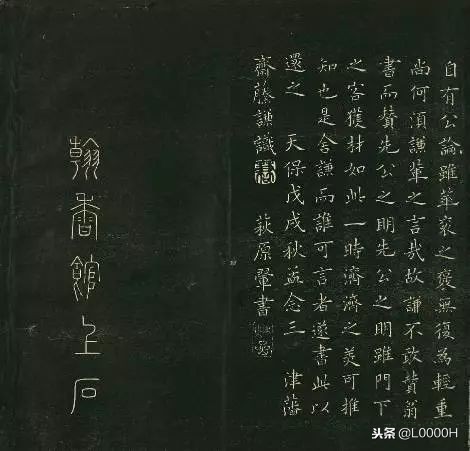 自有公論雖華衮之褒無復為輕重
尚何須謙輩之言哉故謙不敢贊翁
書而贊先公之明先公之明雖門下
之客獲封如此一時濟濟之美可推
知也是舍謙而誰可言者遂書此以
還之 天保戊戌秋孟念三 津藩
齋藤謙識
萩原翬書
翰香館上石
头条 @L0000H